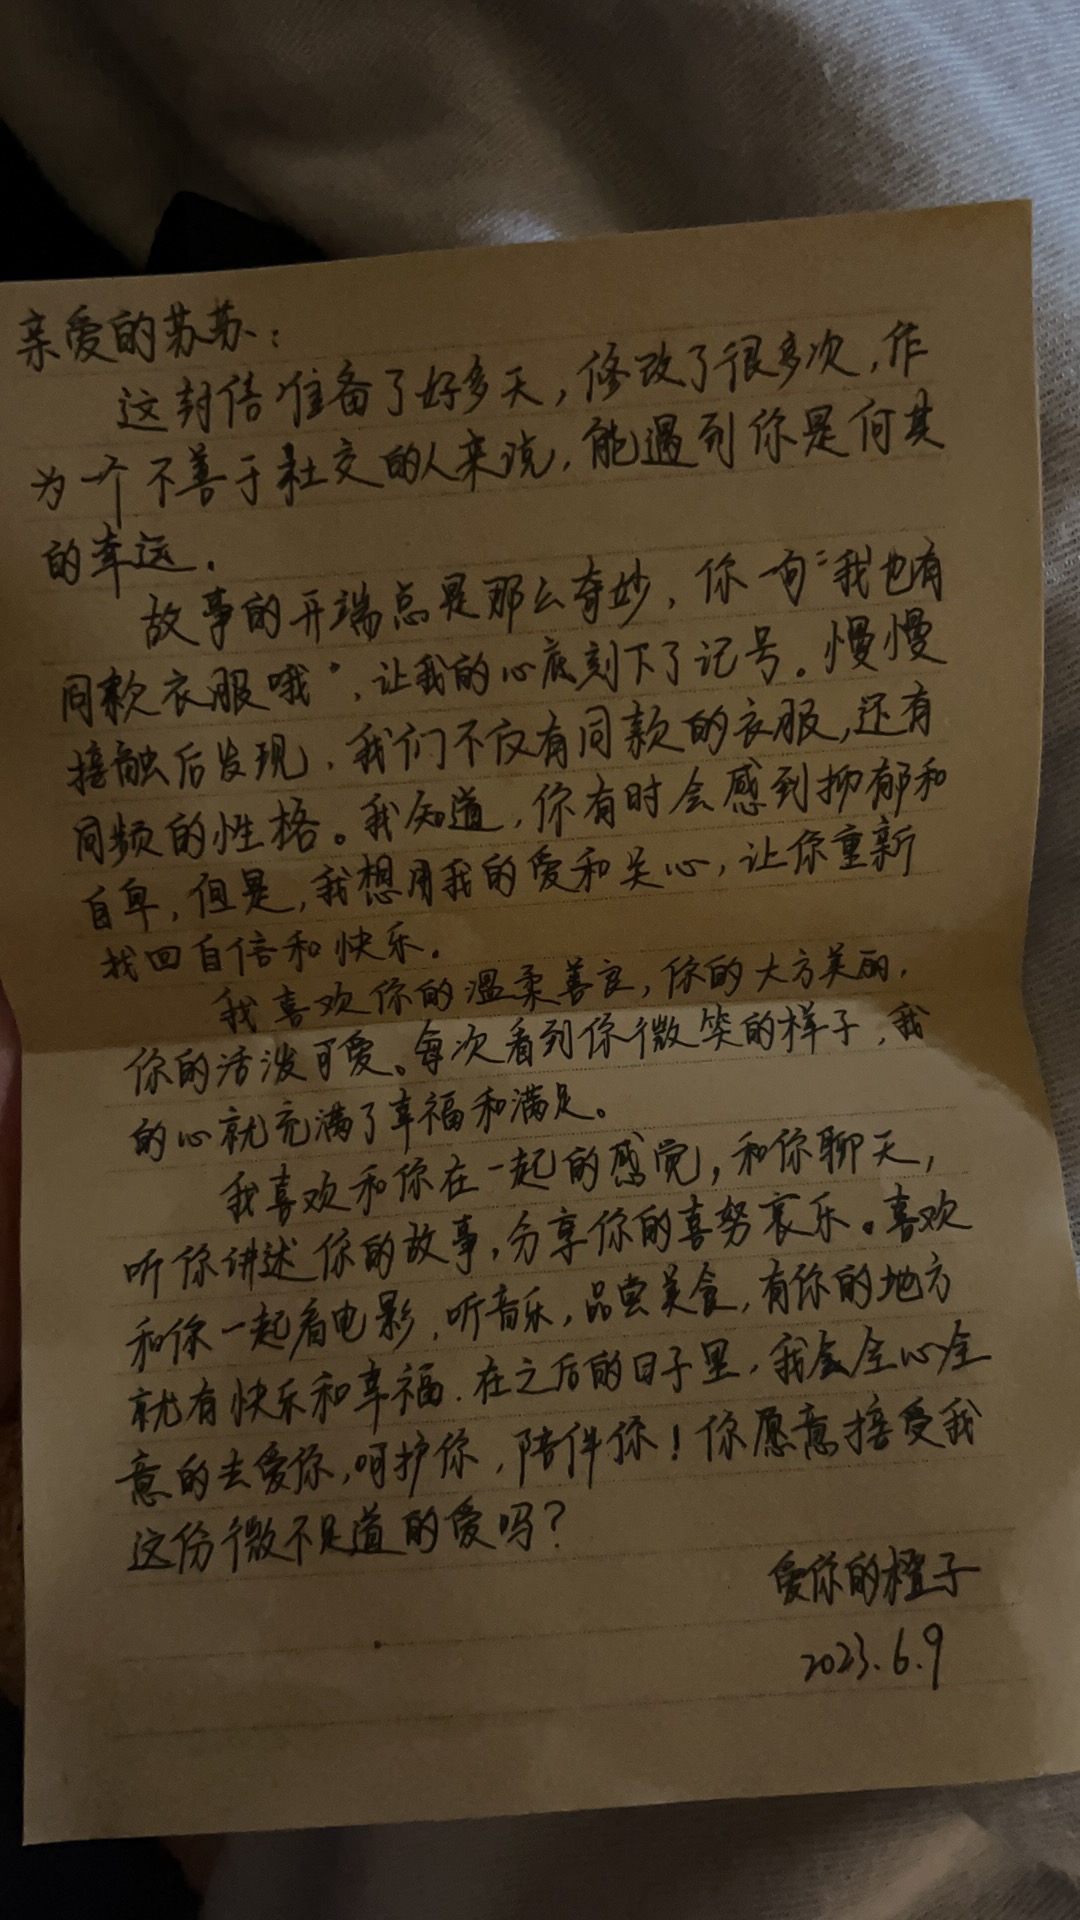 亲爱的苏苏：
这封信准备了好多天，修改了很多次，作
为一个不善于社交的人来说，能遇到你是何其
的幸运．
故事的开端总是那么奇妙，你一句“我也有
同款衣服哦”，让我的心底刻下了记号。慢慢
接触后发现，我们不仅有同款的衣服，还有
同频的性格。我知道，你有时会感到抑郁和
自卑，但是，我想用我的爱和关心，让你重新
找回自信和快乐．
我喜欢你的温柔善良，你的大方美丽，
你的活泼可爱。每次看到你微笑的样子，我
的心就充满了幸福和满足。
我喜欢和你在一起的感觉，和你聊天，
听你讲述你的故事，分享你的喜努哀乐。喜欢
和你一起看电影，听音乐，品尝美食，有你的地方
就有快乐和幸福．在之后的日子里，我会全心全
意的去爱你，呵护你，陪伴你！你愿意接受我
这份微不足道的爱吗？
爱你的橙子
2023.6.9